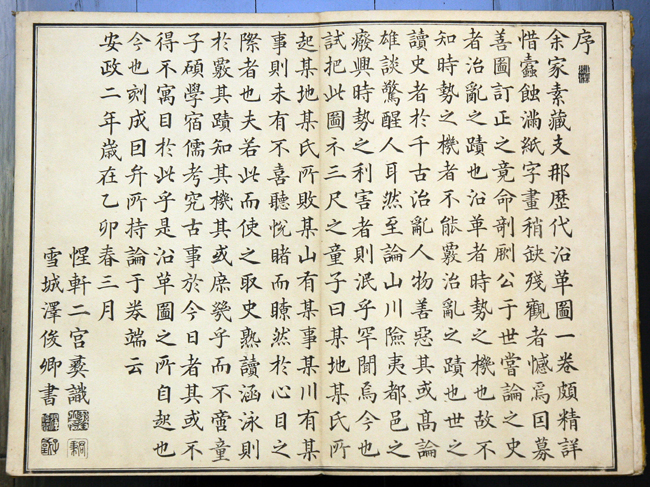 序
余家素藏支那歷代沿革圖一卷頗精詳
惜蠹蝕滿紙字畫稍缺殘觀者憾焉因募
善圖訂正之竟命剞劂公于世嘗論之史
者治亂之蹟也沿革者時勢之機也故不
知時勢之機者不能覈治亂之蹟也世之
讀史者於千古治亂人物善惡其或高論
雄談驚醒人耳然至論山川險夷都邑之
癈興時勢之利害者則泯乎罕聞焉今也
試把此圖示三尺之童子曰某地某氏所
起某地某氏所敗某山有某事某川有某
事則未有不喜聽悅睹而瞭然於心目之
際者也夫若此而使之取史熟讀涵泳則
於覈其蹟知其機其或庶幾乎而不啻童
子碩學宿儒考究古事於今日者其或不
得不寓目於此乎是沿革圖之所自起也
今也刻成因弁所持論于卷端云
安政二年歲在乙卯春三月
惺軒二宮彝識
雪城澤俊卿書